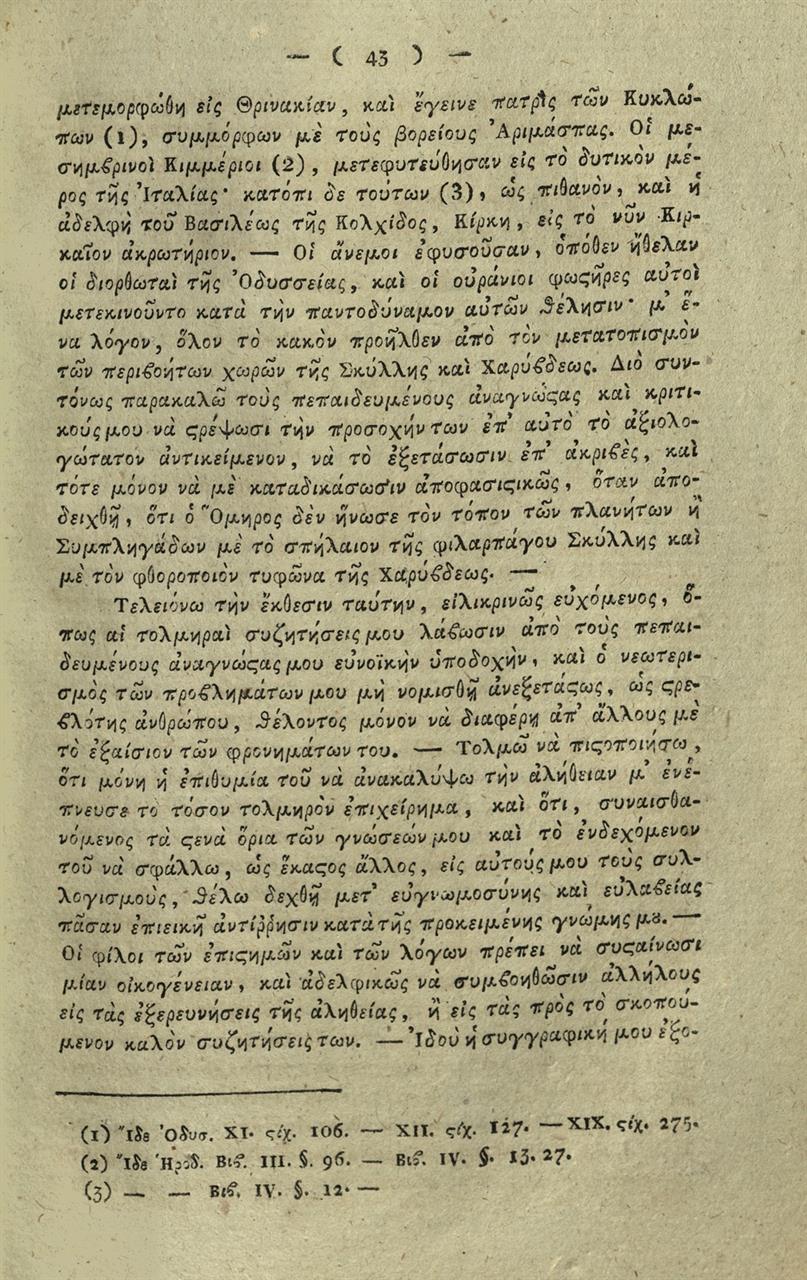 — ( 43 ) —
μετεμορφώθη εἰς Θρινακίαν, καὶ ἔγεινε πατρὶς τῶν Κυκλώ-
πων (1), συμμόρφων μὲ τοὺς βορείους Ἀριμάσπας. Οἱ με-
σημβρινοὶ Κιμμέριοι (2), μετεφυτεύθησαν εἰς τὸ δυτικὸν μέ-
ρος τῆς Ἰταλίας· κατόπι δὲ τούτων (3), ὡς πιθανὸν, καὶ ἡ
ἀδελφὴ τοῦ Βασιλέως τῆς Κολχίδος, Κίρκη, εἰς τὸ νῦν Κιρ-
καῖον ἀκρωτήριον. — Οἱ ἄνεμοι ἐφυσοῦσαν, ὁπόθεν ἤθελαν
οἱ διορθωταὶ τῆς Ὀδυσσείας, καὶ οἱ οὐράνιοι φωςῆρες αὐτοὶ
μετεκινοῦντο κατὰ τὴν παντοδύναμον αὐτῶν θέλησιν· μ' ἕ-
να λόγον, ὅλον τὸ κακὸν προῆλθεν ἀπὸ τὸν μετατοπισμὸν
τῶν περιβοήτων χωρῶν τῆς Σκύλλης καὶ Χαρύβδεως. Διὸ συν-
τόνως παρακαλῶ τοὺς πεπαιδευμένους ἀναγνώςας καὶ κριτι-
κούς μου νὰ ςρέψωσι τὴν προσοχήν των ἐπ' αὐτὸ τὸ ἀξιολο-
γώτατον ἀντικείμενον, νὰ τὸ ἐξετάσωσιν ἐπ' ἀκριβὲς, καὶ
τότε μόνον νὰ μὲ καταδικάσωσιν ἀποφασιςικῶς, ὅταν ἀπο-
δειχθῇ, ὅτι ὁ Ὅμηρος δὲν ἥνωσε τὸν τόπον τῶν πλανήτων ἢ
Συμπληγάδων μὲ τὸ σπήλαιον τῆς φιλαρπάγου Σκύλλης καὶ
μὲ τὸν φθοροποιὸν τυφῶνα τῆς Χαρύβδεως. —
Τελειόνω τὴν ἔκθεσιν ταύτην, εἰλικρινῶς εὐχόμενος, ὅ-
πως αἱ τολμηραὶ συζητήσεις μου λάβωσιν ἀπὸ τοὺς πεπαι-
δευμένους ἀναγνώςας μου εὐνοϊκὴν ὑποδοχὴν, καὶ ὁ νεωτερι-
σμὸς τῶν προβλημάτων μου μὴ νομισθῇ ἀνεξετάςως, ὡς ςρε-
βλότης ἀνθρώπου, θέλοντος μόνον νὰ διαφέρῃ ἀπ' ἄλλους μὲ
τὸ ἐξαίσιον τῶν φρονημάτων του. — Τολμῶ νὰ πιςοποιήσω,
ὅτι μόνη ἡ ἐπιθυμία τοῦ νὰ ἀνακαλύψω τὴν ἀλήθειαν μ' ἐνέ-
πνευσε τὸ τόσον τολμηρὸν ἐπιχείρημα, καὶ ὅτι, συναισθα-
νόμενος τὰ ςενὰ ὅρια τῶν γνώσεών μου καὶ τὸ ἐνδεχόμενον
τοῦ νὰ σφάλλω, ὡς ἕκαςος ἄλλος, εἰς αὐτούς μου τοὺς συλ-
λογισμοὺς, θέλω δεχθῆ μετ' εὐγνωμοσύνης καὶ εὐλαβείας
πᾶσαν ἐπιεικῆ ἀντίῤῥησιν κατὰ τῆς προκειμένης γνώμης μȣ. —
Οἱ φίλοι τῶν ἐπιςημῶν καὶ τῶν λόγων πρέπει νὰ συςαίνωσι
μίαν οἰκογένειαν, καὶ ἀδελφικῶς νὰ συμβοηθῶσιν ἀλλήλους
εἰς τὰς ἐξερευνήσεις τῆς ἀληθείας, ἢ εἰς τὰς πρὸς τὸ σκοπού-
μενον καλὸν συζητήσεις των. — Ἰδοὺ ἡ συγγραφική μου ἐξο-
(1) Ἴδε Ὀδυσ. XI. ςίχ. 106. — XII. ςίχ. 127. — XIX. ςίχ. 275.
(2) Ἴδε Ἡρόδ. Βιβ. III. §. 96. — Βιβ. IV. §. 13. 27.
(3) — — Βιβ. IV. §. 12. —